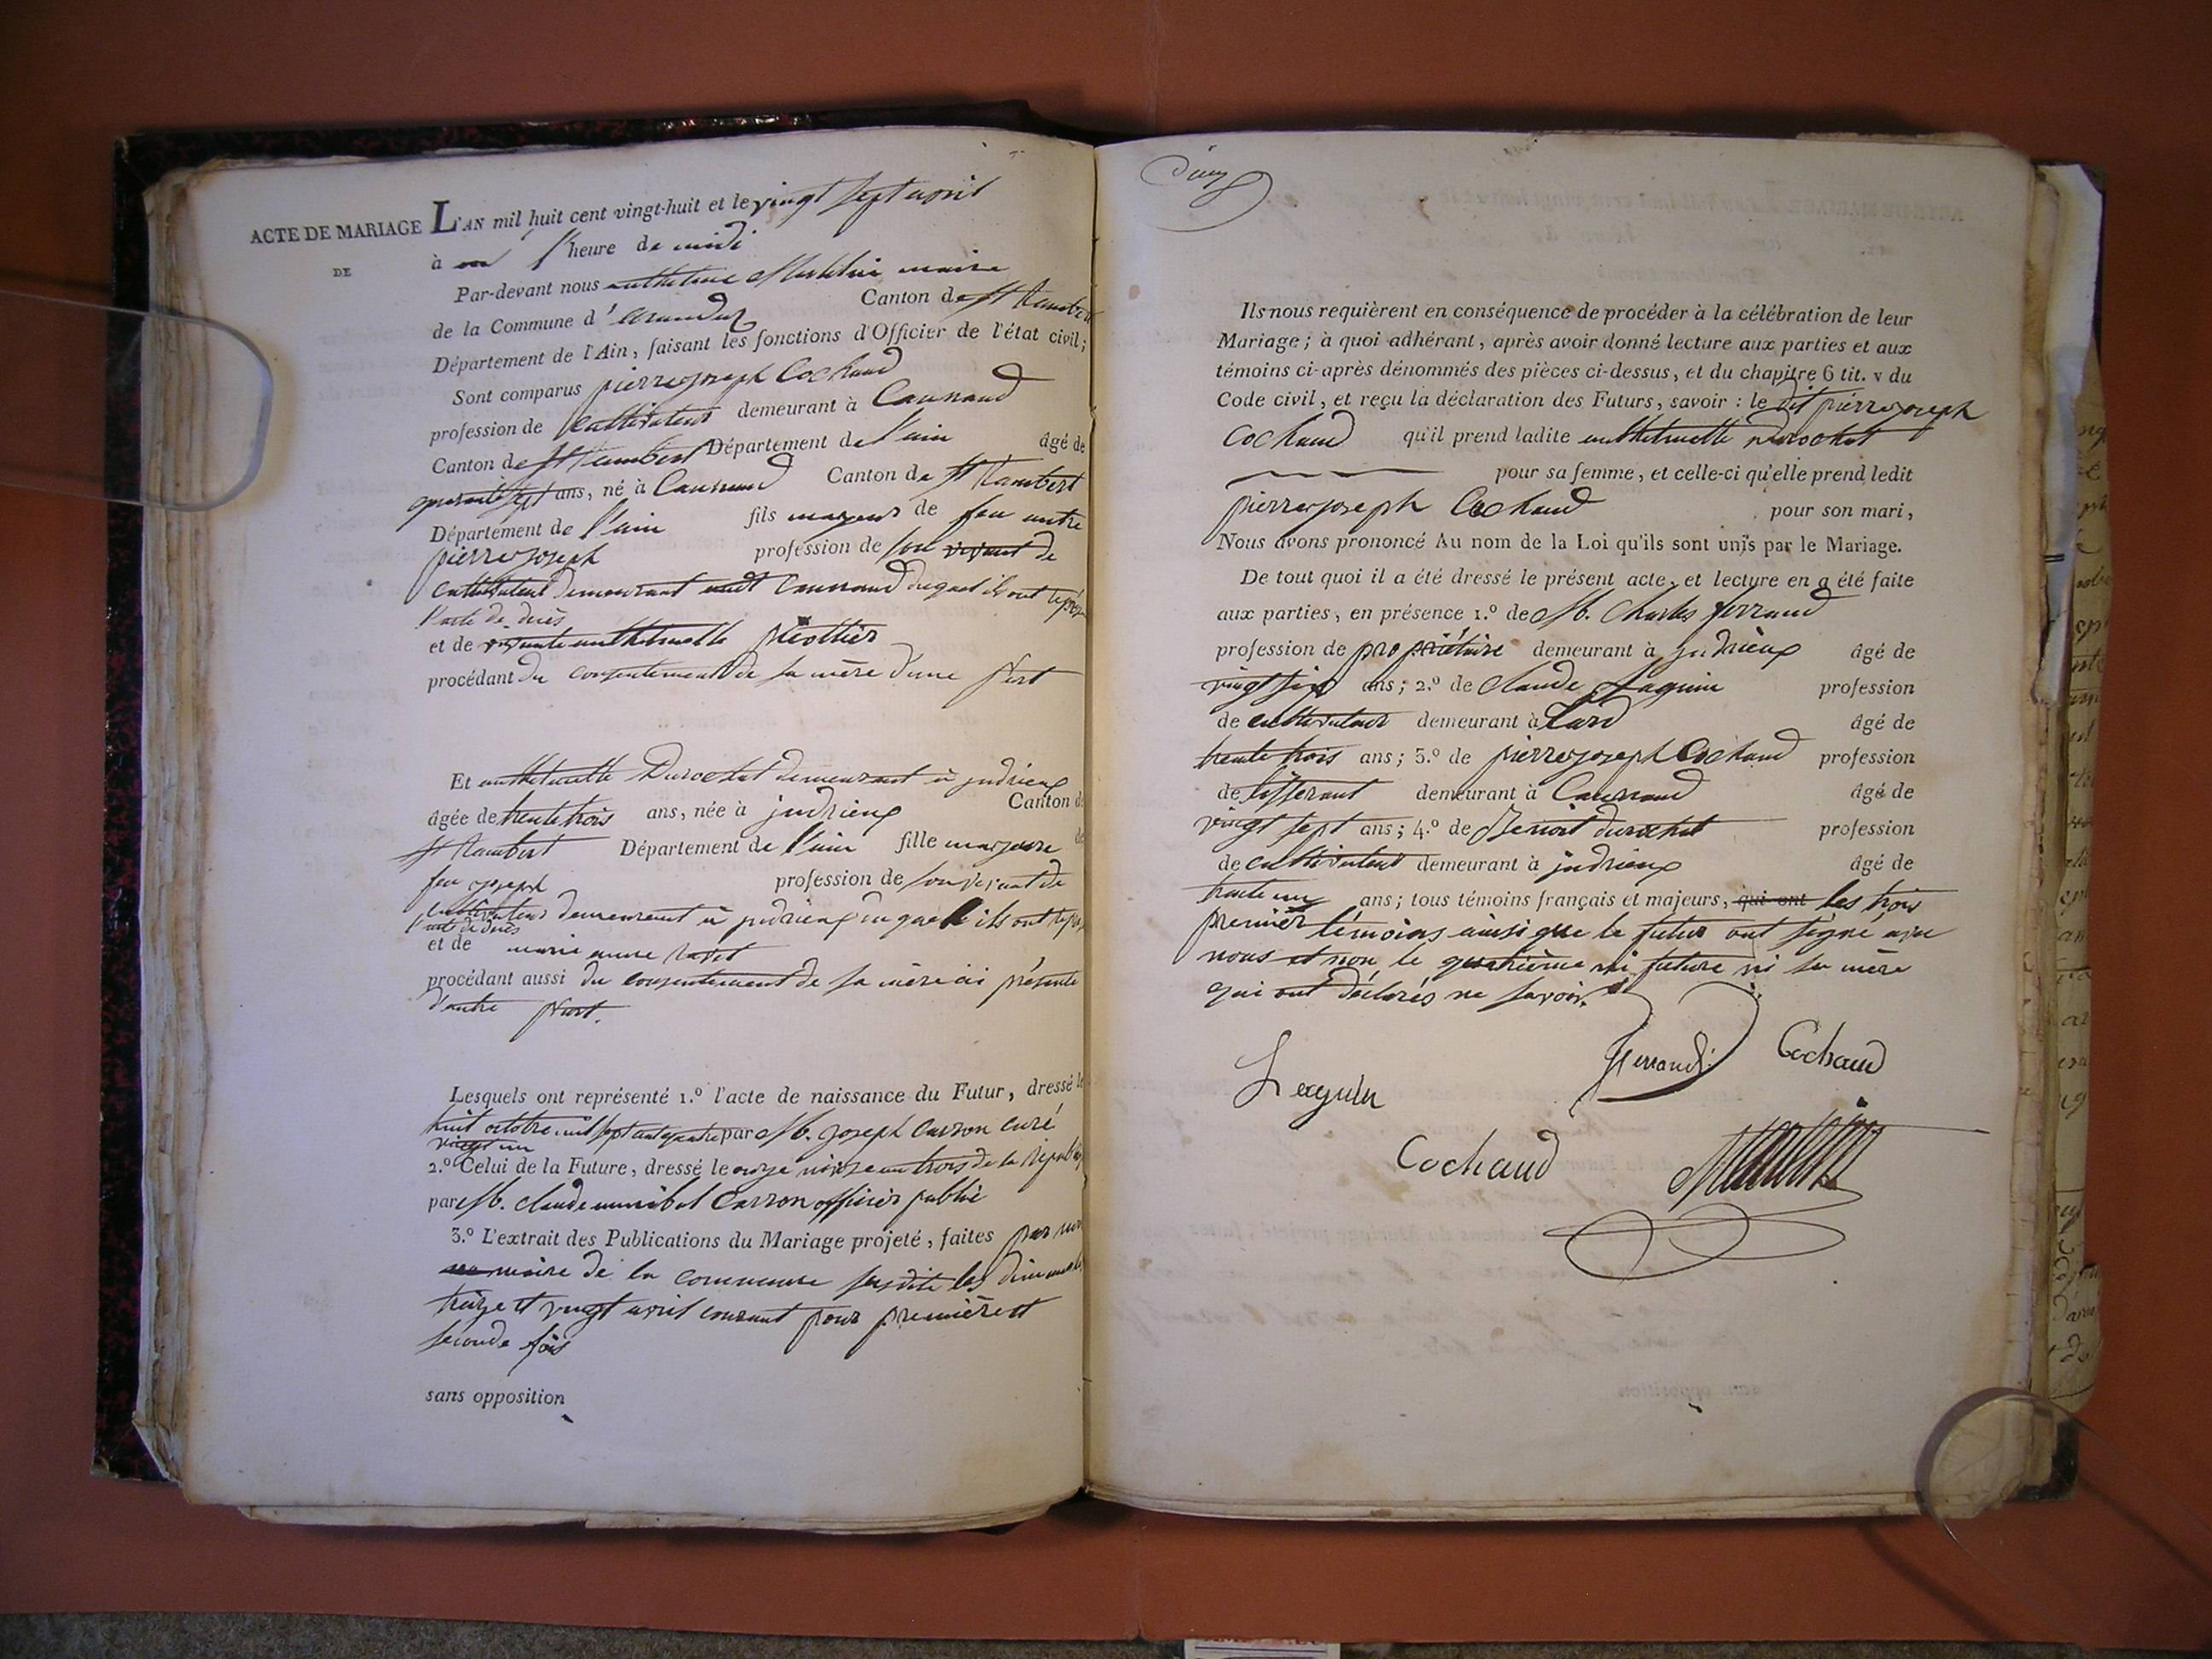 ACTE DE MARIAGE L'AN mil huit cent vingt-huit et le vingt sept avril
DE
à l'heure de midi
Par-devant nous anthelme maire
de la Commune d' Canton de St Rambert
Département de l'Ain, faisant les fonctions d'Officier de l'état civil;
Sont comparus pierre joseph Cochaud
profession de cultivateur demeurant à
Canton de St Rambert Département de l'ain âgé de
quarante sept ans, né à Canton de St Rambert
Département de l'ain fils majeur de feu autre
pierre joseph profession de son vivant de
cultivateur demeurant
l'acte de décès
et de vivante anthelmette
procédant du consentement de sa mère d'une part
Et anthelmette Durochat demeurant à judrieux
âgée de trente trois ans, née à judrieux Canton de
St Rambert Département de l'ain fille majeure de
feu joseph profession de son vivant de
cultivateur demeurant à judrieux duquel ils ont
l'acte de décès
et de marie anne
procédant aussi du consentement de sa mère ici présente
d'autre part.
Lesquels ont représenté 1.º l'acte de naissance du Futur, dressé le
huit octobre mil sept cent quatre par M. joseph Carron curé
vingt un
2.º Celui de la Future, dressé le onze nivose an trois de la
par M. claude annibal Carron officier public
3.º L'extrait des Publications du Mariage projeté, faites par
maire de la commune susdite les
treize et vingt avril courant pour première et
seconde fois
sans opposition
Ils nous requièrent en conséquence de procéder à la célébration de leur
Mariage; à quoi adhérant, après avoir donné lecture aux parties et aux
témoins ci-après dénommés des pièces ci-dessus, et du chapitre 6 tit. v du
Code civil, et reçu la déclaration des Futurs, savoir : le dit pierre joseph
Cochaud qu'il prend ladite anthelmette durochat
pour sa femme, et celle-ci qu'elle prend ledit
pierre joseph Cochaud pour son mari,
Nous avons prononcé Au nom de la Loi qu'ils sont unis par le Mariage.
De tout quoi il a été dressé le présent acte, et lecture en a été faite
aux parties, en présence 1.º de M. Charles ferrand
profession de propriétaire demeurant à judrieux âgé de
vingt six ans; 2.º de Claude
profession
de cultivateur demeurant à âgé de
trente trois ans; 3.º de pierre joseph Cochaud profession
de tisserant demeurant à âgé de
vingt sept ans; 4.º de Benoit durochat profession
de cultivateur demeurant à judrieux âgé de
trente un ans; tous témoins français et majeurs, qui ont les trois
premier témoins ainsi que le futur ont signé avec
nous et non le quatrième ni future ni sa mère
qui ont déclarés ne savoir.
Ferrand Cochaud
Cochaud